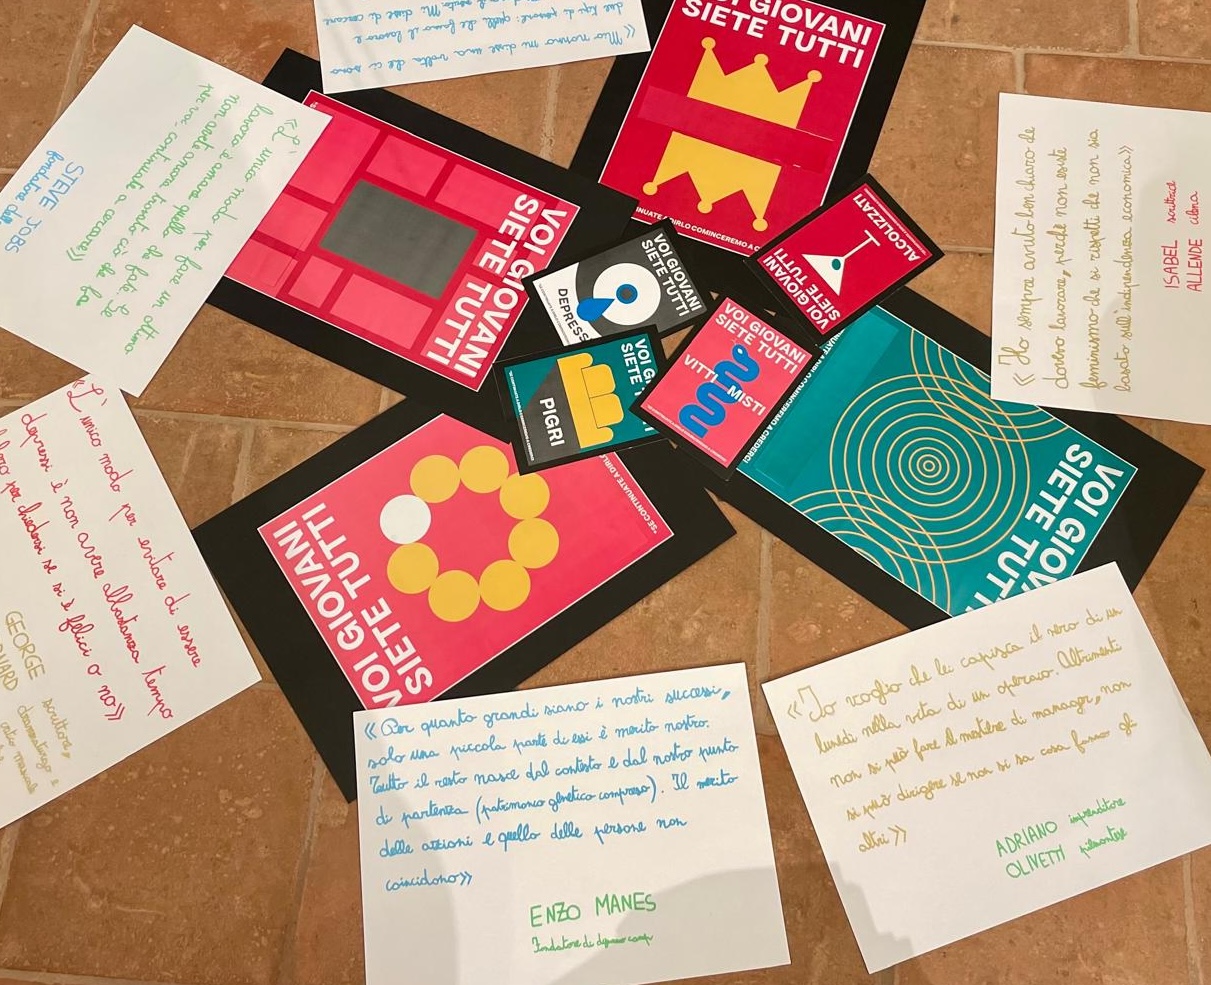 «Mio nonno mi disse una volta che ci sono
due tipi di persone: quelle che fanno il lavoro e
Mi disse di cercare
VOI GIOVANI
SIETE TUTTI
«L'unico modo per fare un ottimo
lavoro è amare quello che fate. Se
non avete ancora trovato ciò che fa
per voi, continuate a cercare»
STEVE JOBS
fondatore della
VOI GIOVANI
SIETE TUTTI
VOI GIOVANI
SIETE TUTTI
DEPRESS
VOI GIOVANI
SIETE TUTTI
ALCOLIZZATI
VOI GI
SIETE T
PIGRI
VOI GIOVANI
SIETE TUTTI
VITTI MISTI
«Ho sempre avuto ben chiaro de
dovevo lavorare, perché non esiste
femminismo che si rispetti che non sia
basato sull'indipendenza economica»
ISABEL scrittrice
ALLENDE cilena
VOI GIOVANI
SIETE TUTTI
"SE CONTINUATE A DIRLO
VOI GIOV
SIETE TUTT
NUATE A DIRLO COMINCEREMO A CREDERCI
NUATE A DIRLO COMINCEREMO A C
«L'unico modo per evitare di essere
depressi è non avere abbastanza tempo
libero per chiedersi se si è felici o no»
GEORGE scrittore,
drammaturgo e
«Per quanto grandi siano i nostri successi,
solo una piccola parte di essi è merito nostro.
Tutto il resto nasce dal contesto e dal nostro punto
di partenza (patrimonio genetico compreso). Il merito
delle azioni e quello delle persone non
coincidono»
ENZO MANES
Fondatore di dynamo camp
«Io voglio che lei capisca il nero di un
lunedì nella vita di un operaio. Altrimenti
non si può fare il mestiere di manager, non
si può dirigere se non si sa cosa fanno gli
altri»
ADRIANO imprenditore
OLIVETTI piemontese